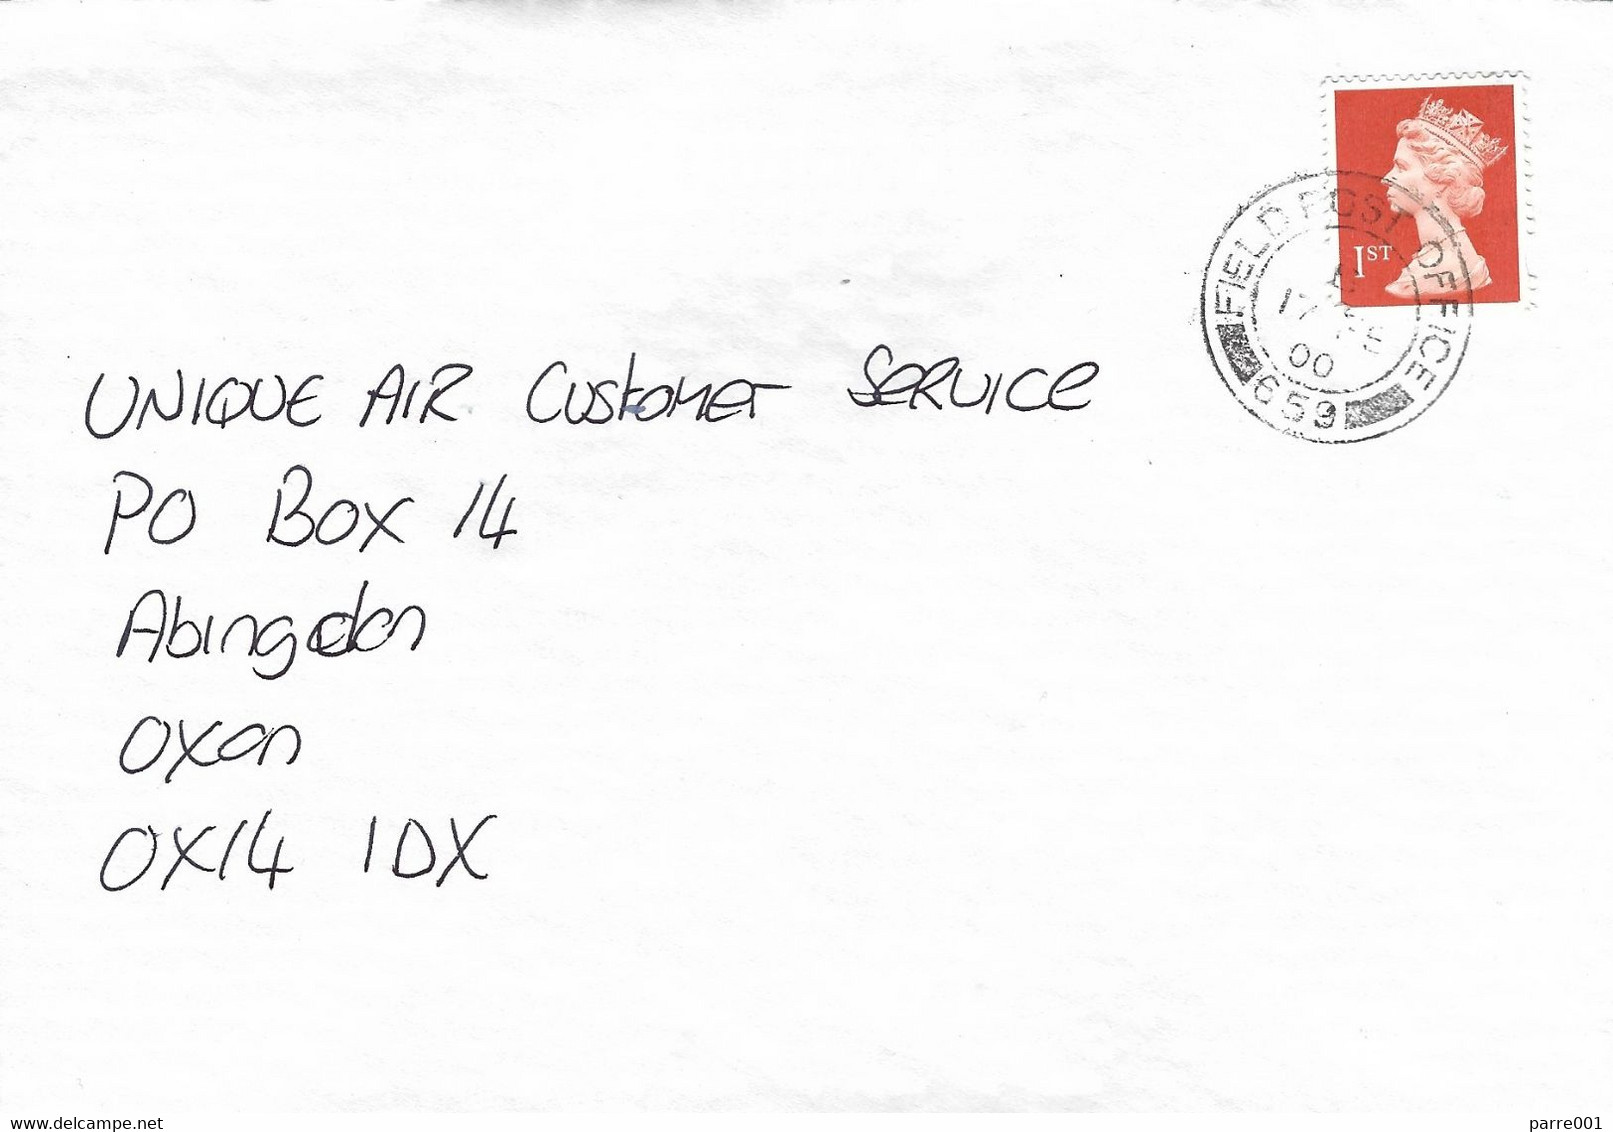 1ST
FIELD POST OFFICE
17
00
659
UNIQUE AIR Customer SERVICE
PO BOX 14
Abingdon
OXON
OX14 1DX
delcampe.net
parre001